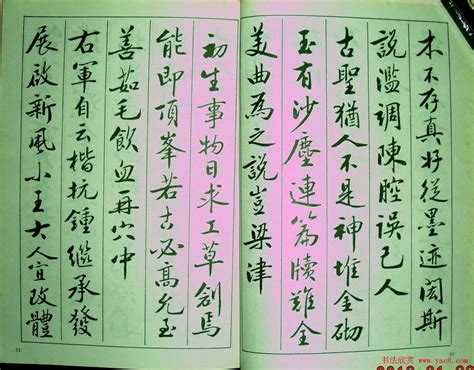 木不存真好從墨迹斯
說濫調陳腔誤已人
古聖猶人不是神堆金砌
玉有沙塵連篇牘難全
美曲為之說豈梁津
初生事物日求工草創焉
能即頂峯若古必高允玉
善茹毛飲血再穴中
右軍自云楷抗鍾繼承發
展啟新風小王大人宜改體
书法欣赏 www.yac8.com